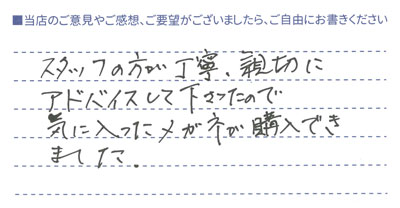 ■当店のご意見やご感想、ご要望がございましたら、ご自由にお書きください
スタッフの方が丁寧、親切に
アドバイスして下さったので
気に入ったメガネが購入でき
ました.